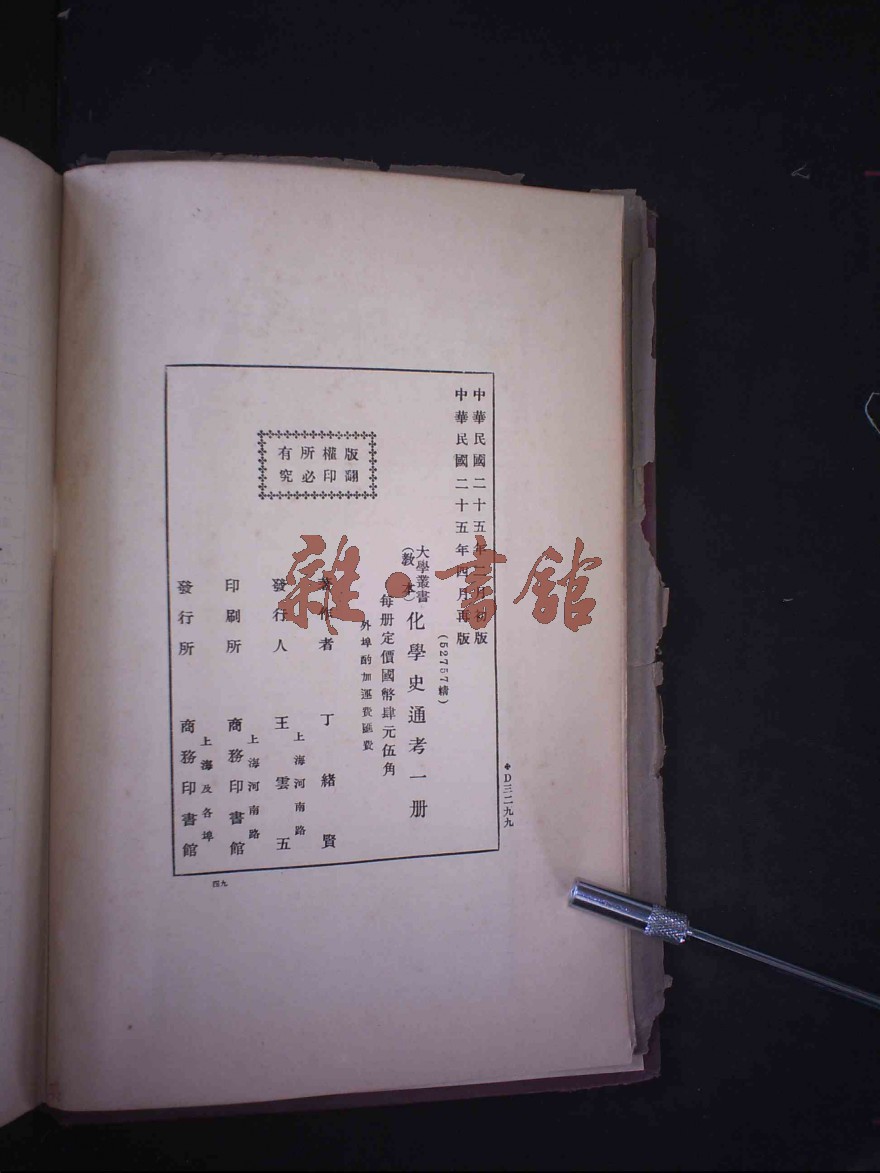 中華民國二十五年二月初版
中華民國二十五年四月再版
(52757精)
大學叢書
(教本)
化學史通考一册
每册定價國幣肆元伍角
外埠酌加運費匯費
著作者 丁緒賢
上海河南路
發行人 王雲五
上海河南路
印刷所 商務印書館
上海及各埠
發行所 商務印書館
版權所有
翻印必究
D三二九九
四九
雜·書館